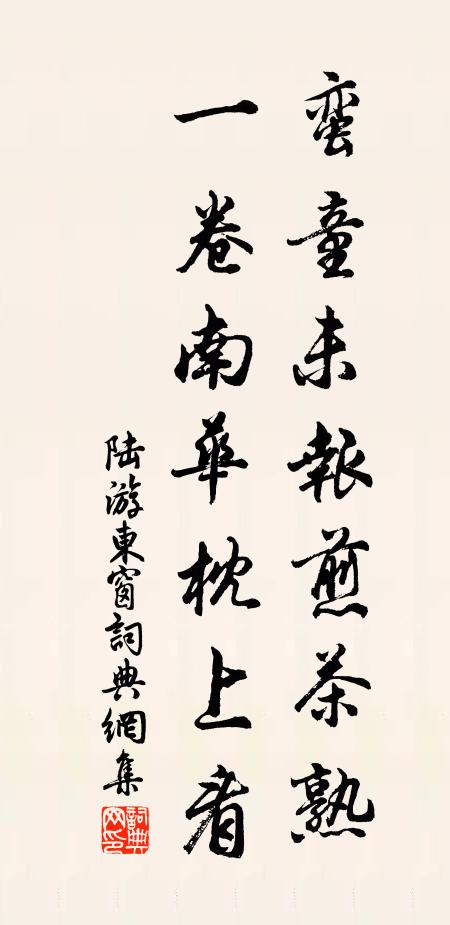 蛮童未報煎茶熟
一卷南華枕上看
陆游東窗詞典網集
詞典网印